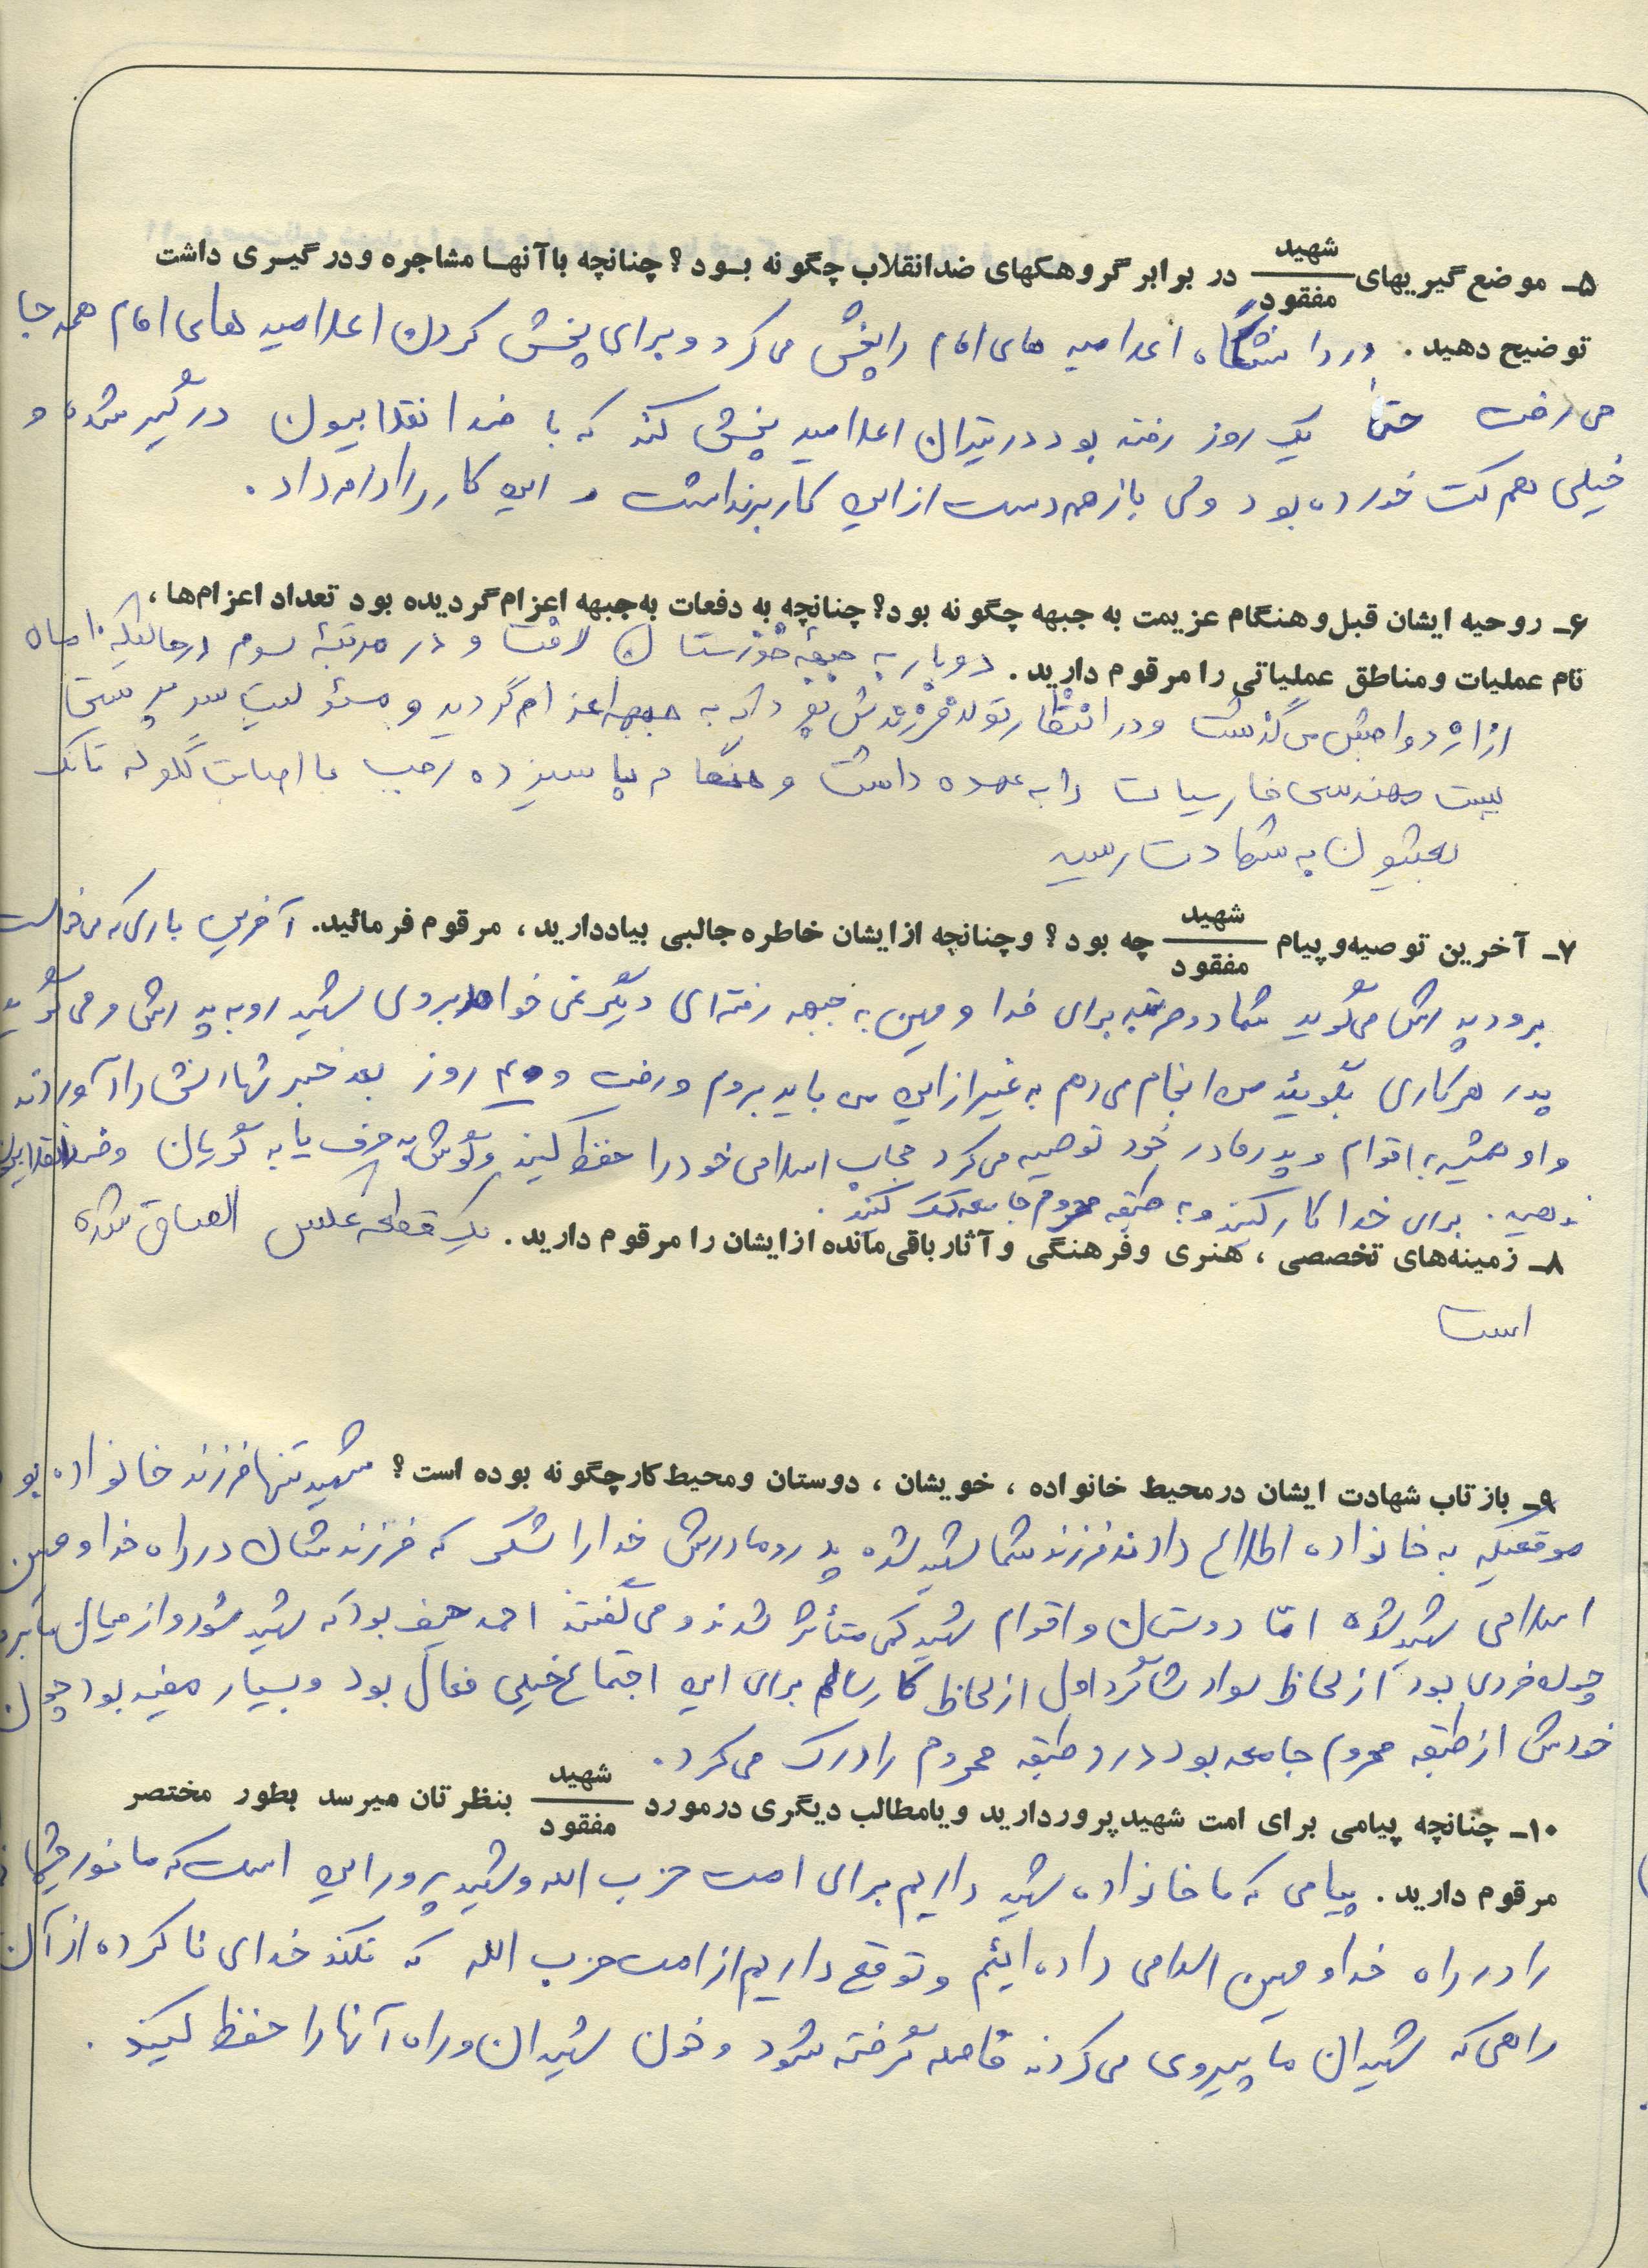 ۵ـ موضع گیریهای شهید / مفقود در برابر گروهکهای ضدانقلاب چگونه بود؟ چنانچه با آنها مشاجره و درگیری داشت
توضیح دهید. در دانشگاه اعلامیه های امام را پخش می کرد و برای پخش کردن اعلامیه های امام همه جا
می رفت حتی یک روز رفته بود در تیران اعلامیه پخش کند که با ضد انقلابیون درگیر شده و
خیلی هم کتک خورده بود ولی باز هم دست از این کار برنداشت و این کار را ادامه داد.
۶ـ روحیه ایشان قبل و هنگام عزیمت به جبهه چگونه بود؟ چنانچه به دفعات به جبهه اعزام گردیده بود تعداد اعزام‌ها،
نام عملیات و مناطق عملیاتی را مرقوم دارید. دو بار به جبهه خوزستان رفت و در مرتبهٔ سوم در حالیکه ۱۰ ماه
از ازدواجش می گذشت و در انتظار تولد فرزندش بود که به جبهه اعزام گردید و مسئولیت سرپرستی
بیست مهندسی فارسیات را به عهده داشت و هنگام سیزده رجب با اصابت گلوله تانک
بعثیون به شهادت رسید
۷ـ آخرین توصیه و پیام شهید / مفقود چه بود؟ و چنانچه از ایشان خاطره جالبی بیاد دارید، مرقوم فرمائید. آخرین باری که می خواست
برود پدرش می گوید شما دو مرتبه برای خدا و میهن به جبهه رفته ای دیگر نمی خواهد بروی شهید رو به پدرش و می گوید
پدر هر کاری بگوئید من انجام می دهم به غیر از این من باید بروم و رفت و ۴۰ روز بعد خبر شهادتش را آوردند
و او همیشه به اقوام و پدر و مادر خود توصیه می کرد حجاب اسلامی خود را حفظ کنید و گوش به حرف یابه گویان و ضد انقلابیون
ندهید. برای خدا کار کنید و به طبقه محروم جامعه کمک کنید.
۸ـ زمینه‌های تخصصی، هنری و فرهنگی و آثار باقی‌مانده از ایشان را مرقوم دارید. یک قطعه عکس الصاق شده
است
۹ـ بازتاب شهادت ایشان در محیط خانواده، خویشان، دوستان و محیط کار چگونه بوده است؟ شهید تنها فرزند خانواده بود
موقعیکه به خانواده اطلاع دادند فرزند شما شهید شده پدر و مادرش خدا را شکر که فرزندشان در راه خدا و میهن
اسلامی شهید شده امّا دوستان و اقوام شهید کمی متأثر شدند و می گفتند احمد حیف بود که شهید شود و از میان ما برود
چون فردی بود از لحاظ سواد شاگرد اول از لحاظ کار سالم برای این اجتماع خیلی فعال بود و بسیار مفید بود چون
خودش از طبقه محروم جامعه بود درد طبقه محروم را درک می کرد.
۱۰ـ چنانچه پیامی برای امت شهید پرور دارید و یا مطالب دیگری در مورد شهید / مفقود بنظرتان میرسد بطور مختصر
مرقوم دارید. پیامی که ما خانواده شهید داریم برای امت حزب الله و شهید پرور این است که ما نور چشمان
را در راه خدا و میهن اسلامی داده ایم و توقع داریم از امت حزب الله که نکند خدای نا کرده از آن
راهی که شهیدان ما پیروی می کردند فاصله گرفته شود و خون شهیدان و راه آنها را حفظ کنید.